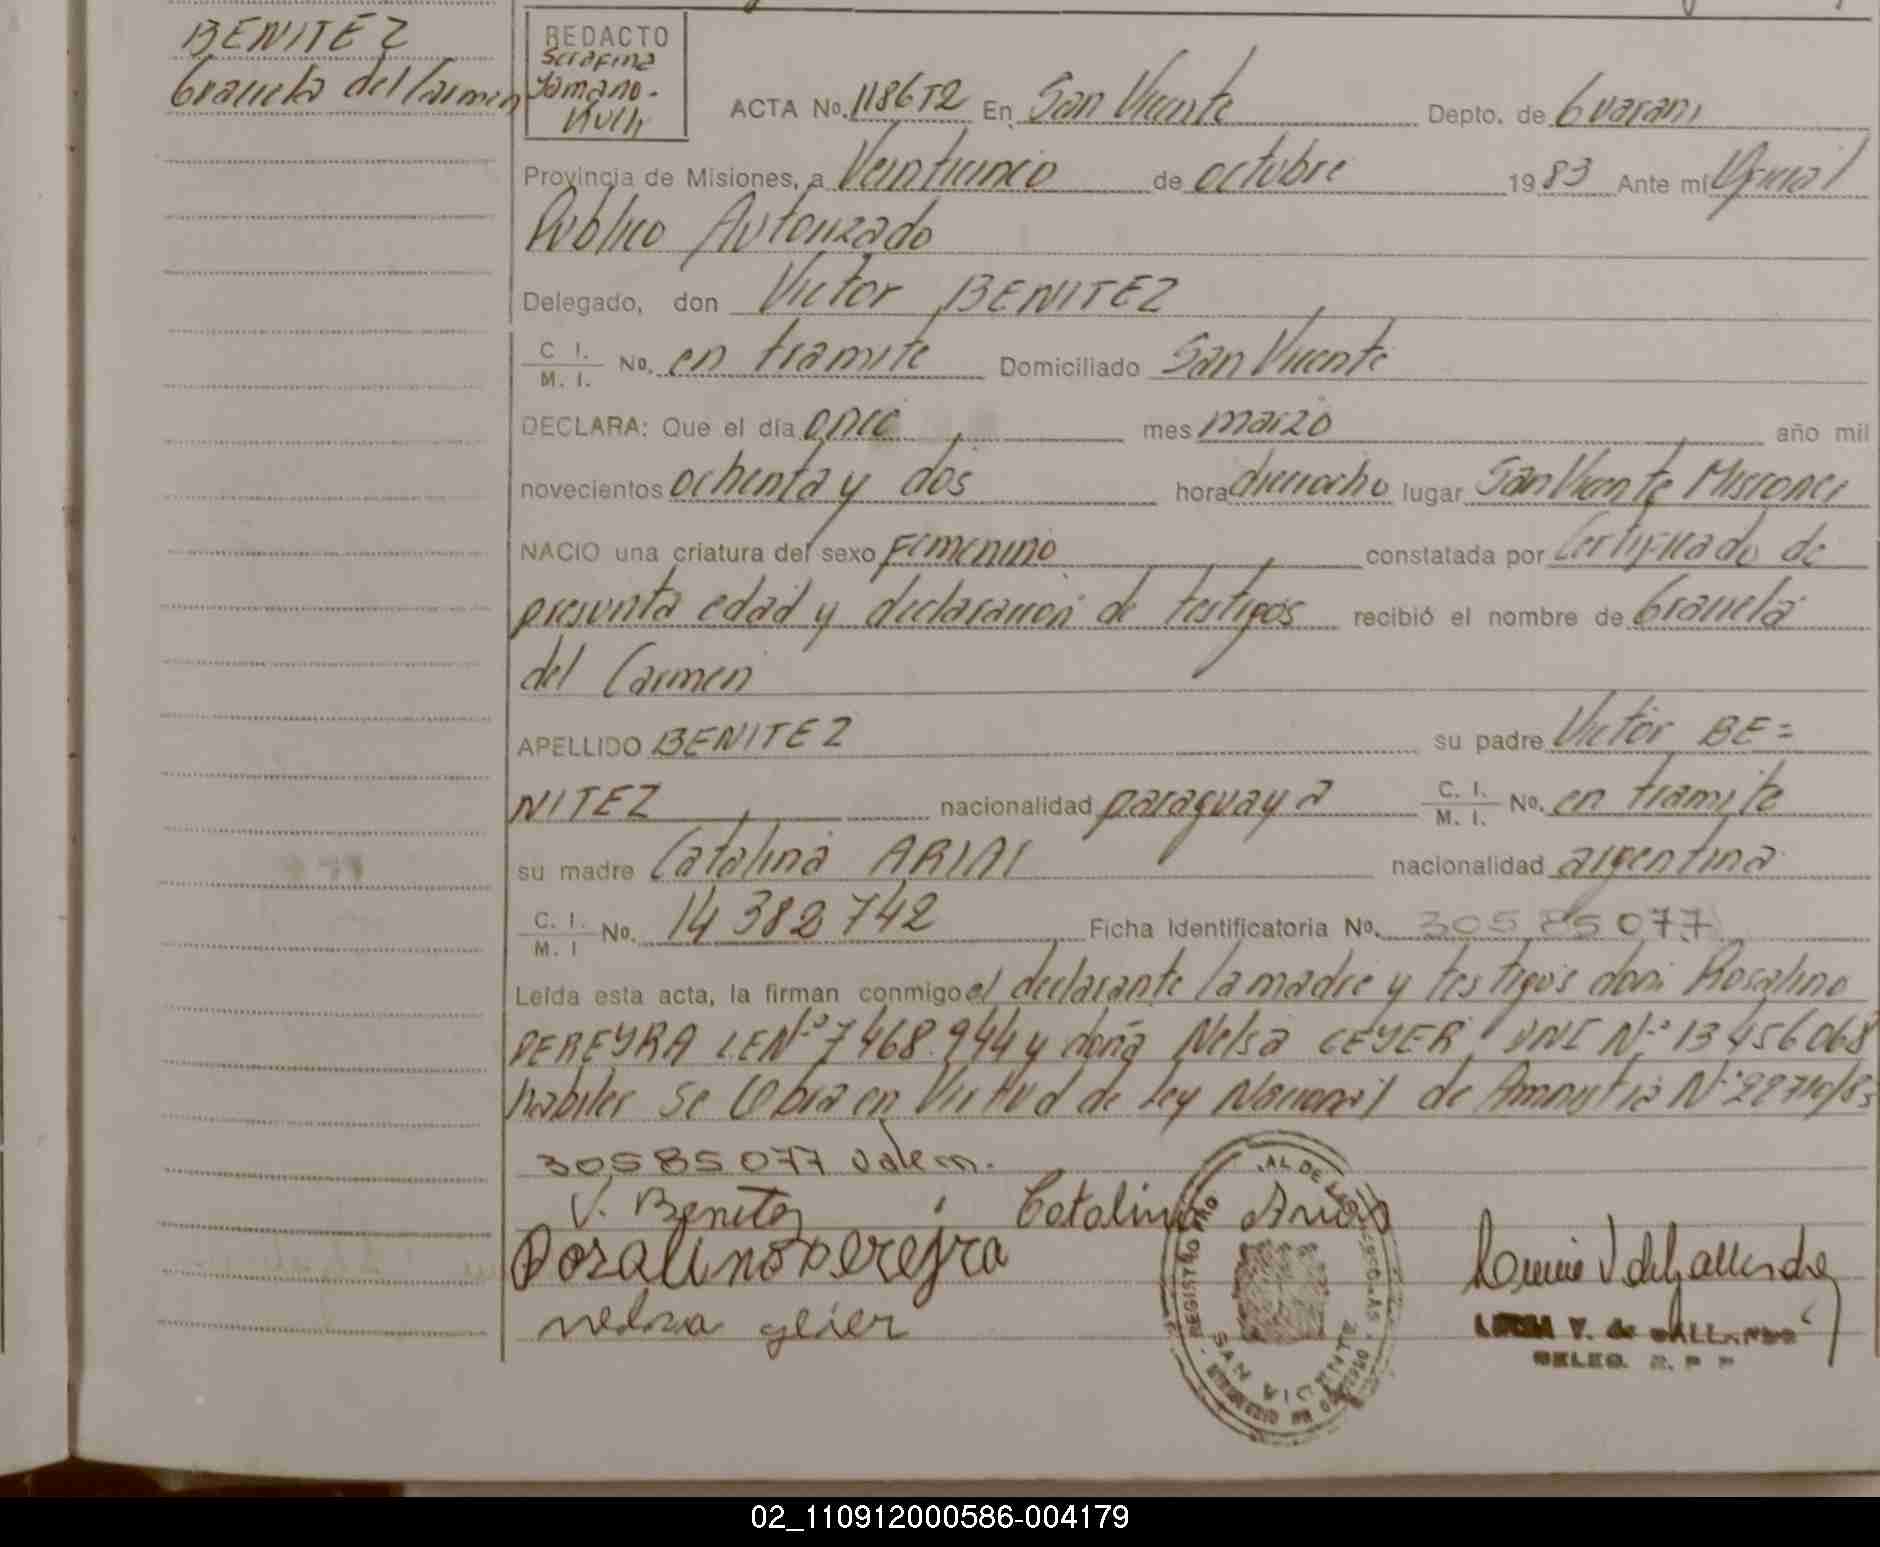 BENITEZ
Graciela del Carmen
REDACTO
Serafina
ACTA No. 1186 T2 En San Vicente Depto. de Guarani
Provincia de Misiones, a Veinticinco de octubre 1983 Ante mi Oficial
Público Autorizado
Delegado, don Victor BENITEZ
C I. / M. I. No. en tramite Domiciliado San Vicente
DECLARA: Que el día once mes marzo año mil
novecientos ochenta y dos hora dieciocho lugar San Vicente Misiones
NACIO una criatura del sexo Femenino constatada por Certificado de
presunta edad y declaracion de testigos recibió el nombre de Graciela
del Carmen
APELLIDO BENITEZ su padre Victor BE=
NITEZ nacionalidad paraguaya C. I. / M. I. No. en tramite
su madre Catalina ARIAS nacionalidad argentina
C. I. / M. I No. 14 382 742 Ficha Identificatoria No. 30585077
Leída esta acta, la firman conmigo el declarante la madre y testigos don Rosalino
PEREYRA L.E Nº 7468.944 y doña Nelsa GEYER DNI Nº 13456068
habiles Se Labra en Virtud de Ley Nacional de Amnystia Nº
30585077 valen.
V. Benitez Catalina Arias
Rosalino Pereyra
nelsa geier
REGISTRO
SAN VICENTE
V. de GALLARDO
DELEG. R. P P
02_110912000586-004179